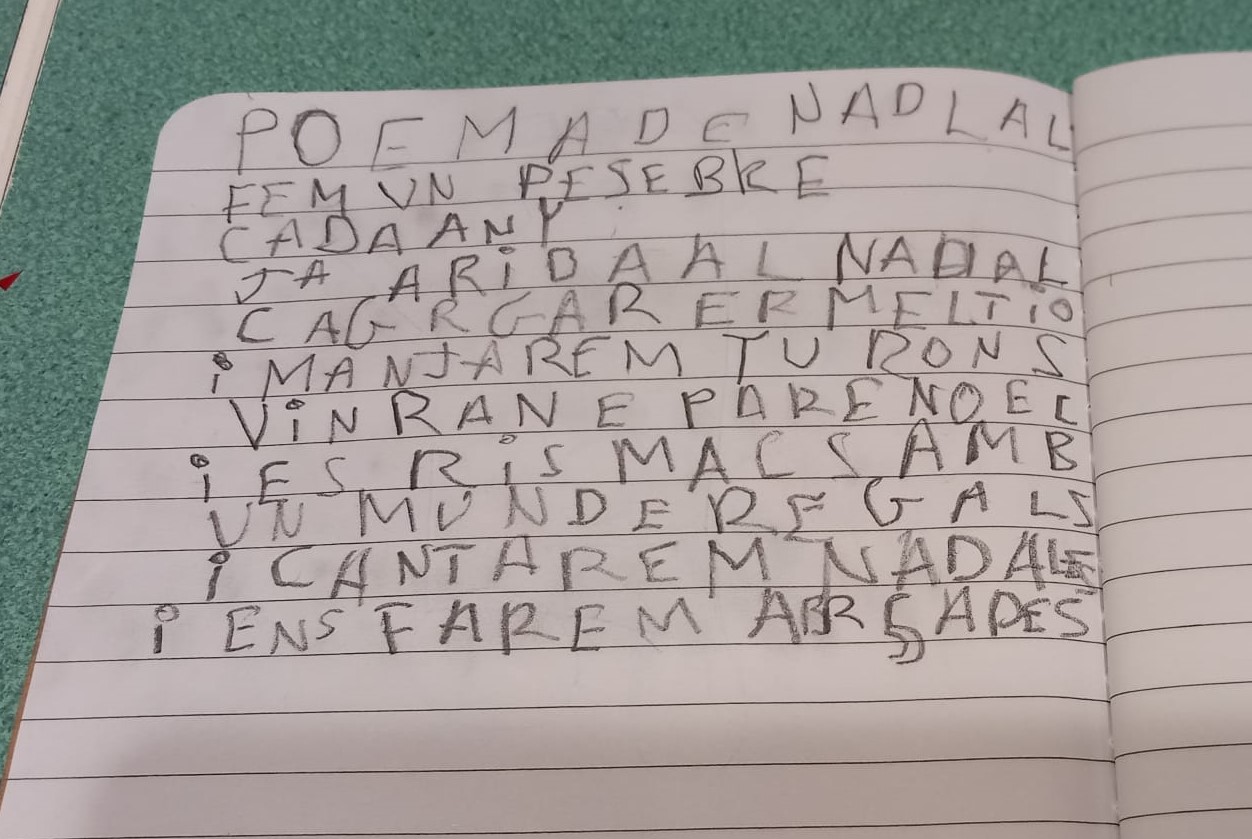 POEMA DE NADLAL
FEM UN PESEBRE
CADA ANY
JA ARiBA AL NADIAL
CAGRGAREREM EL TiO
i MANJAREM TURONS
ViNRAN E PARE NOEL
i ES RiS MACS AMB
UN MUN DE REGALS
i CANTAREM NADALES
i ENS FAREM ABRÇADES